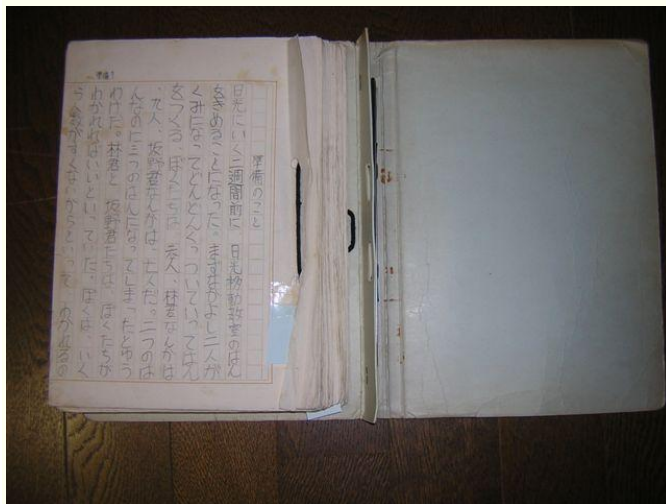 準備1
準備のこと
日光にいく二週間前に 日光移動教室のはん
をきめることになった。まずなかよし二人が
くみになってどんどんくっついていってはん
をつくる。ぼくたちは 六人、林君なんかは
九人、坂野君なんかは 七人だ。二つのは
んなのに三つのはんになってしまったとゆう
わけだ。林君と 坂野君たちは、ぼくたちが
わかれればいいといっていた。ぼくは、いく
らぼくがすくないからといって わかれるの